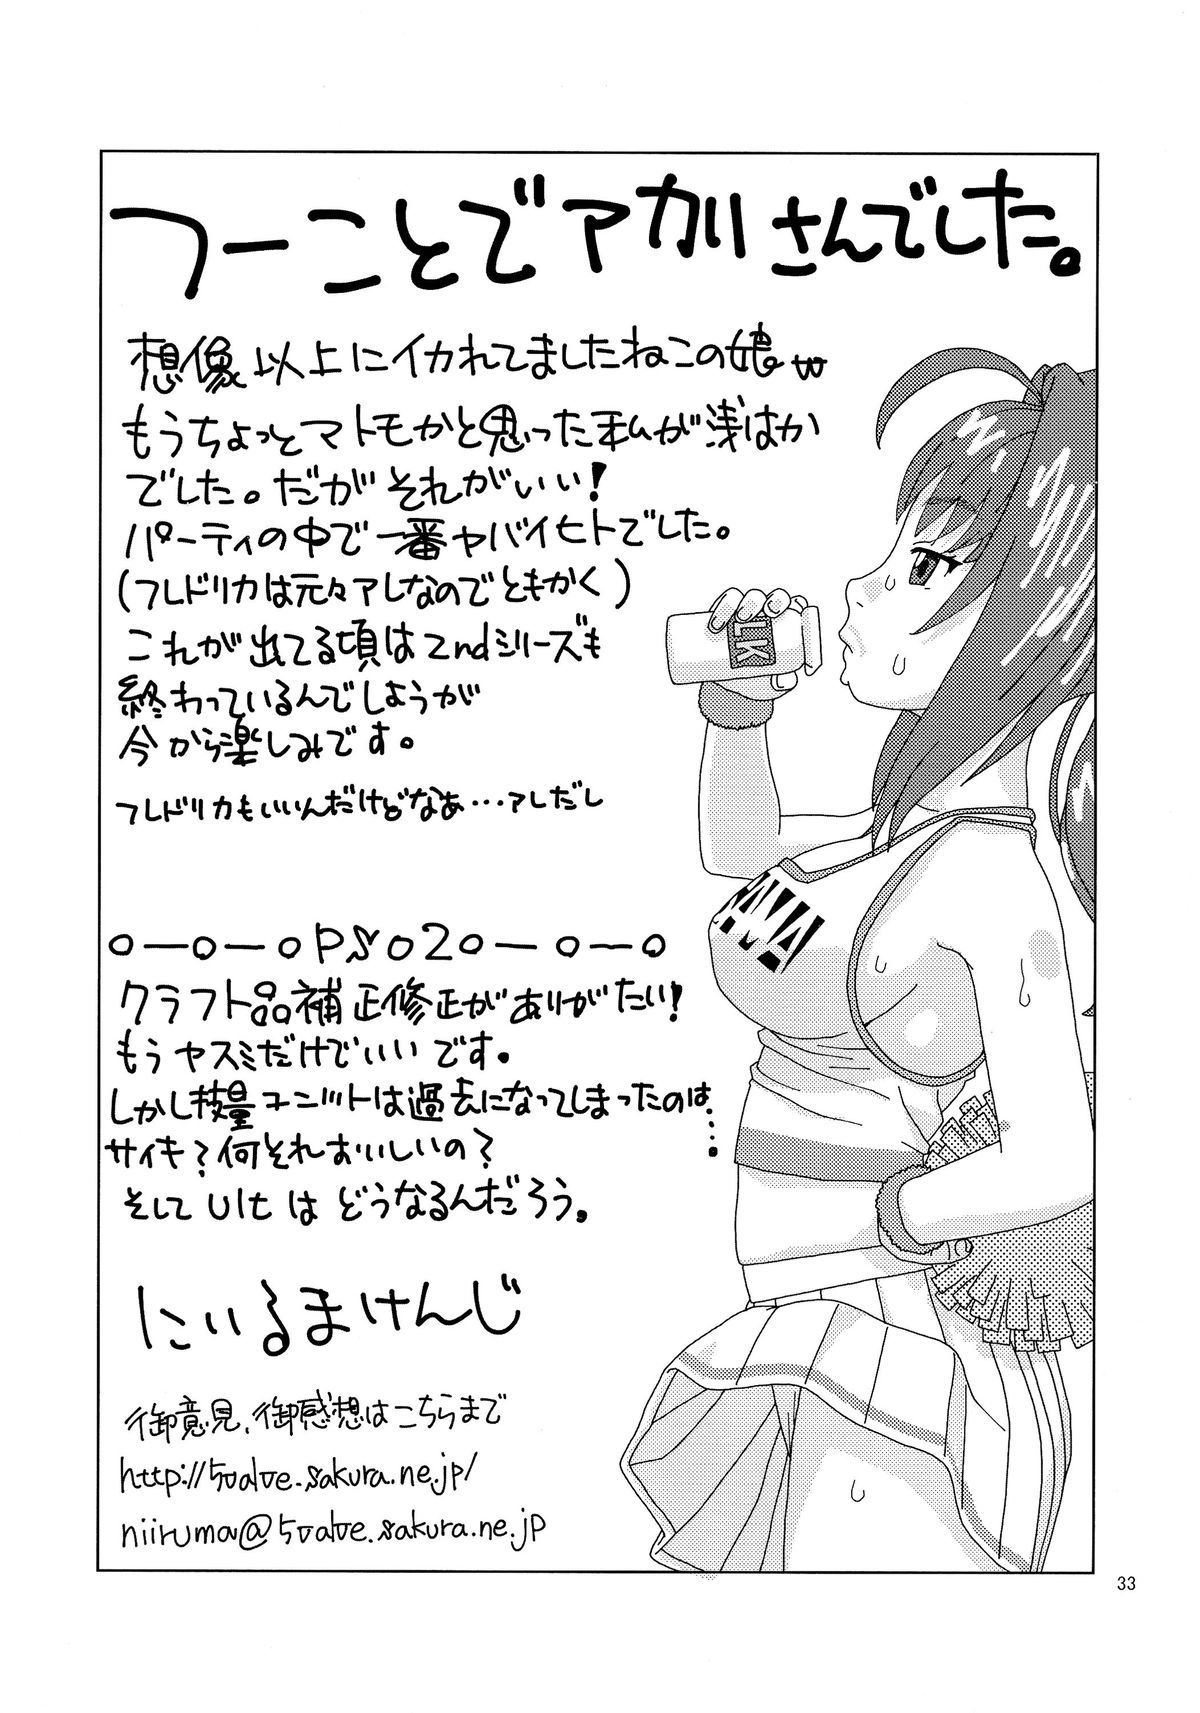 つーことでアカリさんでした。
想像以上にイカれてましたねこの娘。w
もうちょっとマトモかと思った私が浅はか
でした。だがそれがいい!
パーティの中で一番ヤバイヒトでした。
(フレドリカは元々アレなのでともかく)
これが出てる頃は2ndシリーズも
終わっているんでしょうが
今から楽しみです。
フレドリカもいいんだけどなぁ…アレだし
o—o—oPSO2o—o—o
クラフト品補正修正がありがたい!
もうヤスミだけでいいです。
しかし技量ユニットは過去になってしまったのは…。
サイキ?何それおいしいの?
そしてUltはどうなるんだろう。
にいるまけんじ
御意見、御感想はこちらまで
http://5valve.sakura.ne.jp/
niiruma@5valve.sakura.ne.jp
LK
33